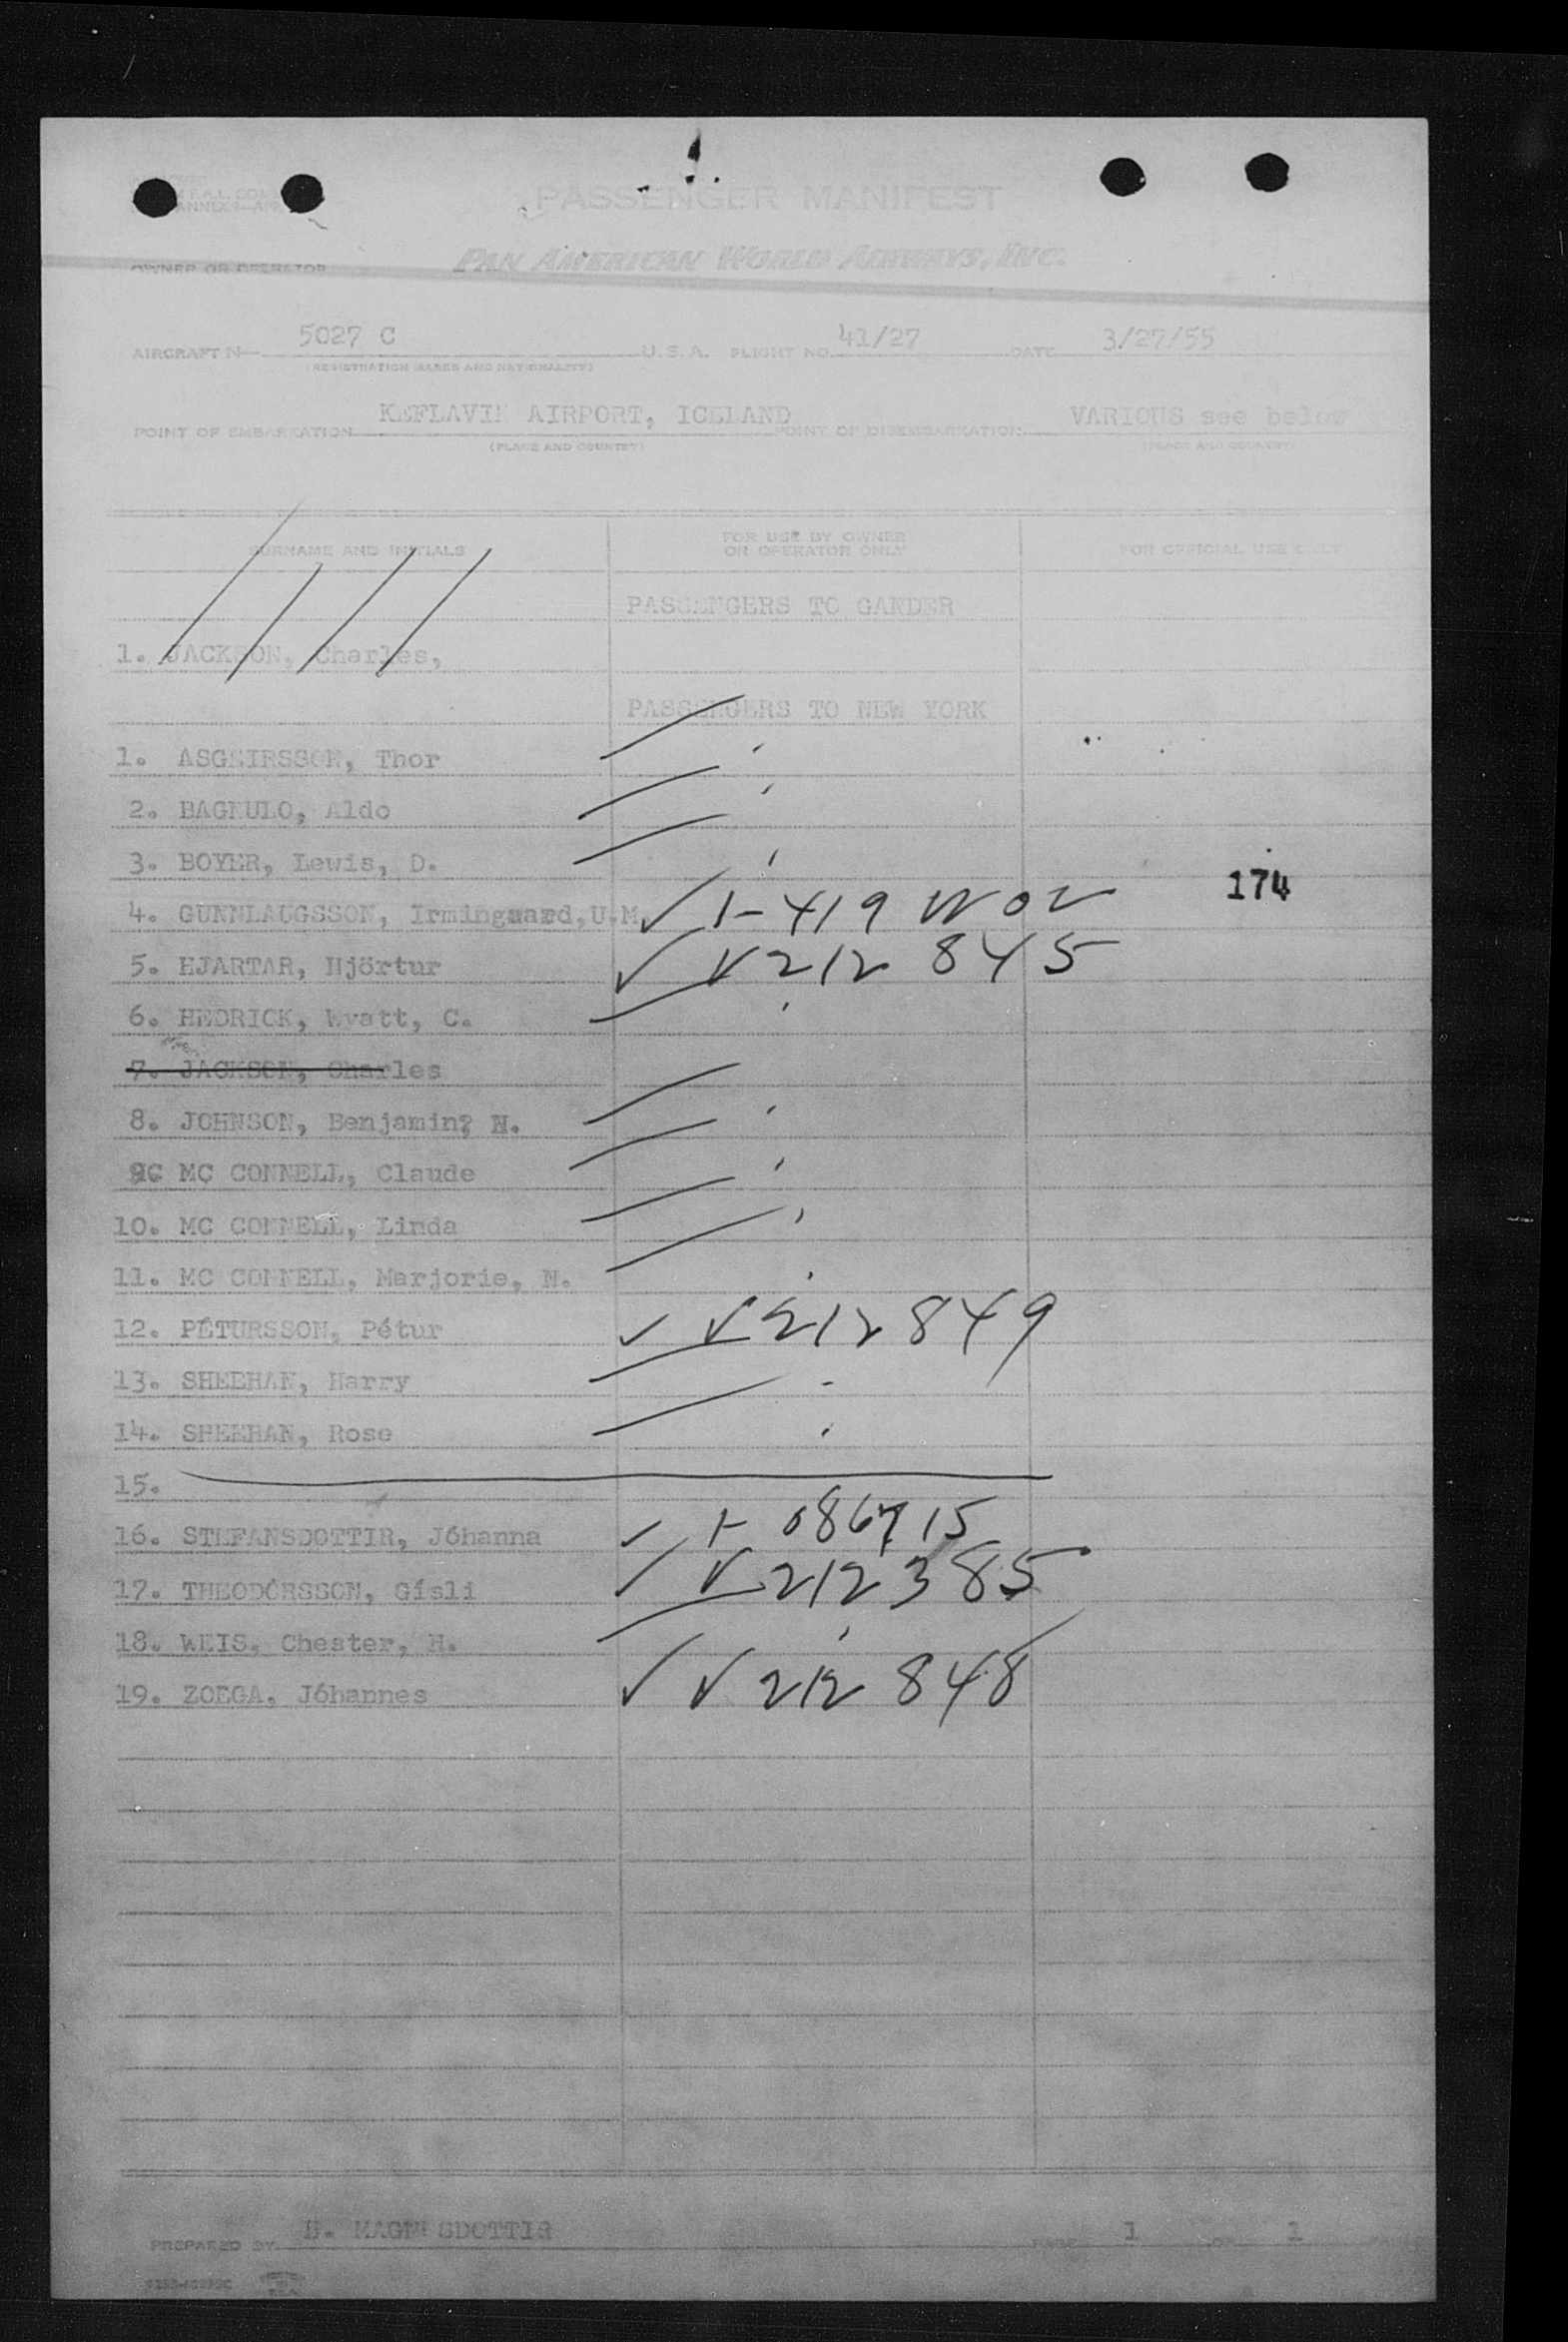 PASSENGER MANIFEST
OWNER OR OPERATOR PAN AMERICAN WORLD AIRWAYS, INC.
AIRCRAFT N 5027 C U.S.A. FLIGHT NO. 41/27 DATE 3/27/55
(REGISTRATION MARKS AND NATIONALITY)
POINT OF EMBARKATION KEFLAVIK AIRPORT, ICELAND POINT OF DISEMBARKATION VARIOUS see below
(PLACE AND COUNTRY) (PLACE AND COUNTRY)
SURNAME AND INITIALS FOR USE BY OWNER OR OPERATOR ONLY FOR OFFICIAL USE ONLY
PASSENGERS TO GANDER
1. JACKSON, Charles,
PASSENGERS TO NEW YORK
1. ASGEIRSSON, Thor
2. BAGNULO, Aldo
3. BOYER, Lewis, D.
174
4. GUNNLAUGSSON, Irmingaard, U.M. ✓ 1-419
5. HJARTAR, Hjörtur ✓ V 212 845
6. HEDRICK, Wyatt, C.
7. JACKSON, Charles
8. JOHNSON, Benjamin, H.
9. MC CONNELL, Claude
10. MC CONNELL, Linda
11. MC CONNELL, Marjorie, N.
12. PÉTURSSON, Pétur ✓ V 212 849
13. SHEEHAN, Harry
14. SHEEHAN, Rose
15.
16. STEFANSDOTTIR, Jóhanna ✓ 1- 086715
17. THEODÓRSSON, Gísli ✓ V 212 385
18. WEIS, Chester, H.
19. ZOEGA, Jóhannes ✓ V 212 848
PREPARED BY MAGNUSDOTTIR PAGE 1 OF 1